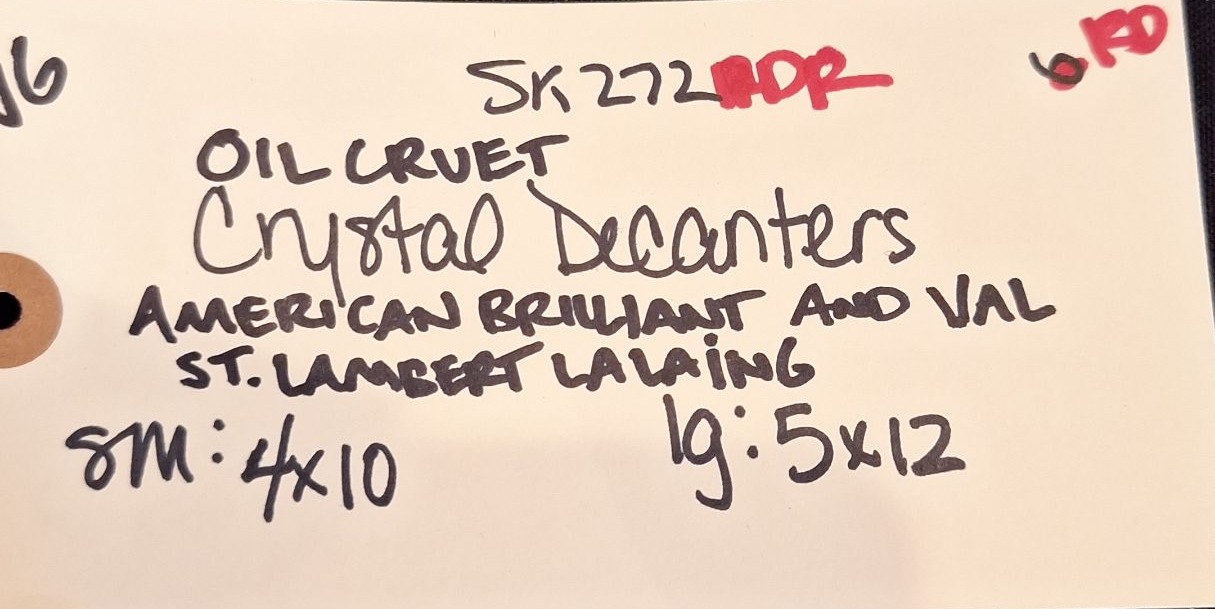 SK272 DR
6 RD
OIL CRUET
Crystal Decanters
AMERICAN BRILLIANT AND VAL
ST. LAMBERT LALAING
sm: 4x10 lg: 5x12